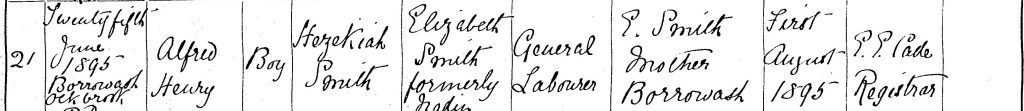 Twenty fifth
June
1895
Borrowash
Ockbrook
21
Alfred
Henry
Boy
Hezekiah
Smith
Elizabeth
Smith
formerly
General
Labourer
E. Smith
Mother
Borrowash
First
August
1895
E. E. Cade
Registrar